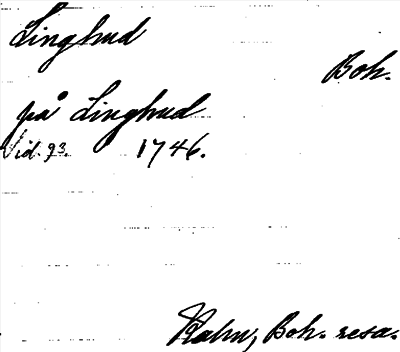 Linghud
Boh.
på Linghud
Sid. 93. 1746.
Kalm, Boh. resa.